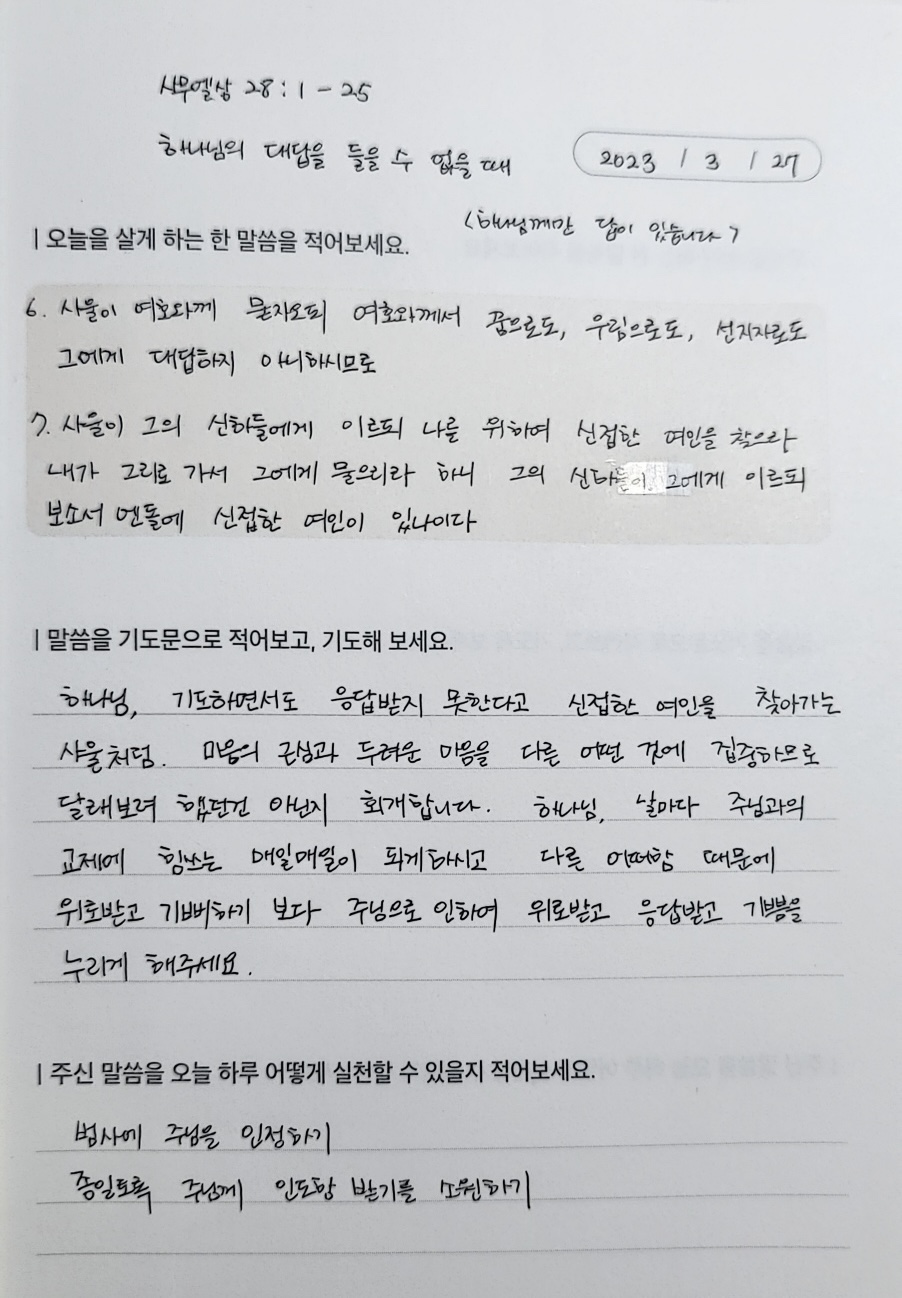 사무엘상 28 : 1 - 25
하나님의 대답을 들을 수 없을 때
2023 / 3 / 27
<하나님께만 답이 있습니다>
| 오늘을 살게 하는 한 말씀을 적어보세요.
6. 사울이 여호와께 묻자오되 여호와께서 꿈으로도, 우림으로도, 선지자로도
그에게 대답하지 아니하시므로
7. 사울이 그의 신하들에게 이르되 나를 위하여 신접한 여인을 찾으라
내가 그리로 가서 그에게 물으리라 하니 그의 신하들이 그에게 이르되
보소서 엔돌에 신접한 여인이 있나이다
| 말씀을 기도문으로 적어보고, 기도해 보세요.
하나님, 기도하면서도 응답받지 못한다고 신접한 여인을 찾아가는
사울처럼. 마음의 근심과 두려운 마음을 다른 어떤 것에 집중하므로
달래보려 했던건 아닌지 회개합니다. 하나님, 날마다 주님과의
교제에 힘쓰는 매일매일이 되게하시고 다른 어떠함 때문에
위로받고 기뻐하기 보다 주님으로 인하여 위로받고 응답받고 기쁨을
누리게 해주세요.
| 주신 말씀을 오늘 하루 어떻게 실천할 수 있을지 적어보세요.
범사에 주님을 인정하기
종일토록 주님께 인도함 받기를 소원하기